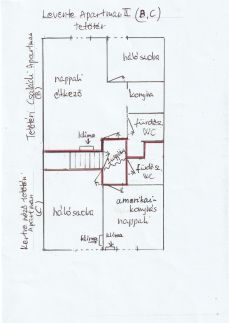 Levente Apartman II (B, C)
tetőtér
Tetőtéri Családi Apartman
(B)
hálószoba
nappali
étkező
konyha
fürdősz.
WC
klíma
fürdősz.
WC
Kertre néző tetőtéri
Apartman
(C)
hálószoba
amerikai-
konyhás
nappali
klíma
klíma